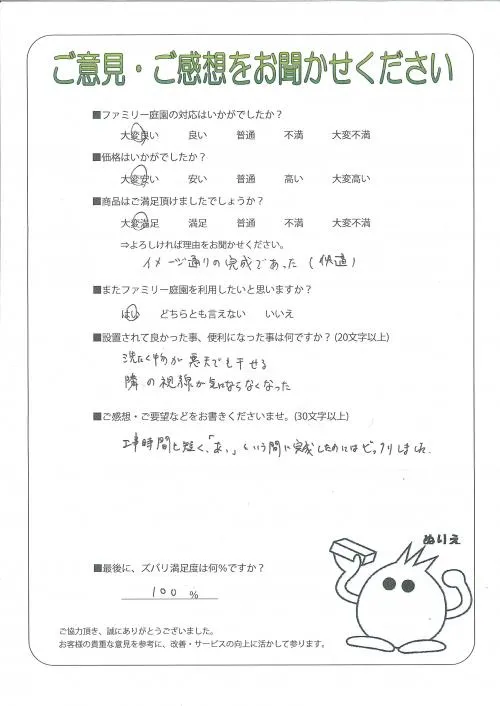 ご意見・ご感想をお聞かせください
■ファミリー庭園の対応はいかがでしたか？
大変良い 良い 普通 不満 大変不満
■価格はいかがでしたか？
大変安い 安い 普通 高い 大変高い
■商品はご満足頂けましたでしょうか？
大変満足 満足 普通 不満 大変不満
⇒よろしければ理由をお聞かせください。
イメージ通りの完成であった(快適)
■またファミリー庭園を利用したいと思いますか？
はい どちらとも言えない いいえ
■設置されて良かった事、便利になった事は何ですか？(20文字以上)
洗たく物が悪天でも干せる
隣の視線が気にならなくなった
■ご感想・ご要望などをお書きくださいませ。(30文字以上)
工事時間も短く、「あっ」という間に完成したのにはビックリしました。
ぬりえ
■最後に、ズバリ満足度は何％ですか？
100 %
ご協力頂き、誠にありがとうございました。
お客様の貴重な意見を参考に、改善・サービスの向上に活かして参ります。